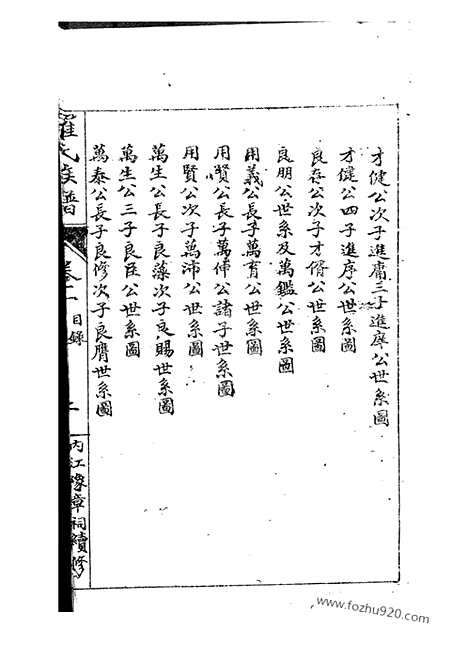 才健公次子進庸三子進庠公世系圖
才健公四子進序公世系圖
良存公次子才偦公世系圖
良朋公世系及萬鑑公世系圖
用義公長子萬育公世系圖
用賢公長子萬俸公諸子世系圖
用賢公次子萬沛公世系圖
萬生公長子良藻次子良賜世系圖
萬生公三子良臣公世系圖
萬泰公長子良修次子良膺世系圖
羅氏族譜
目錄
內江豫章祠續修
www.fozhu920.com